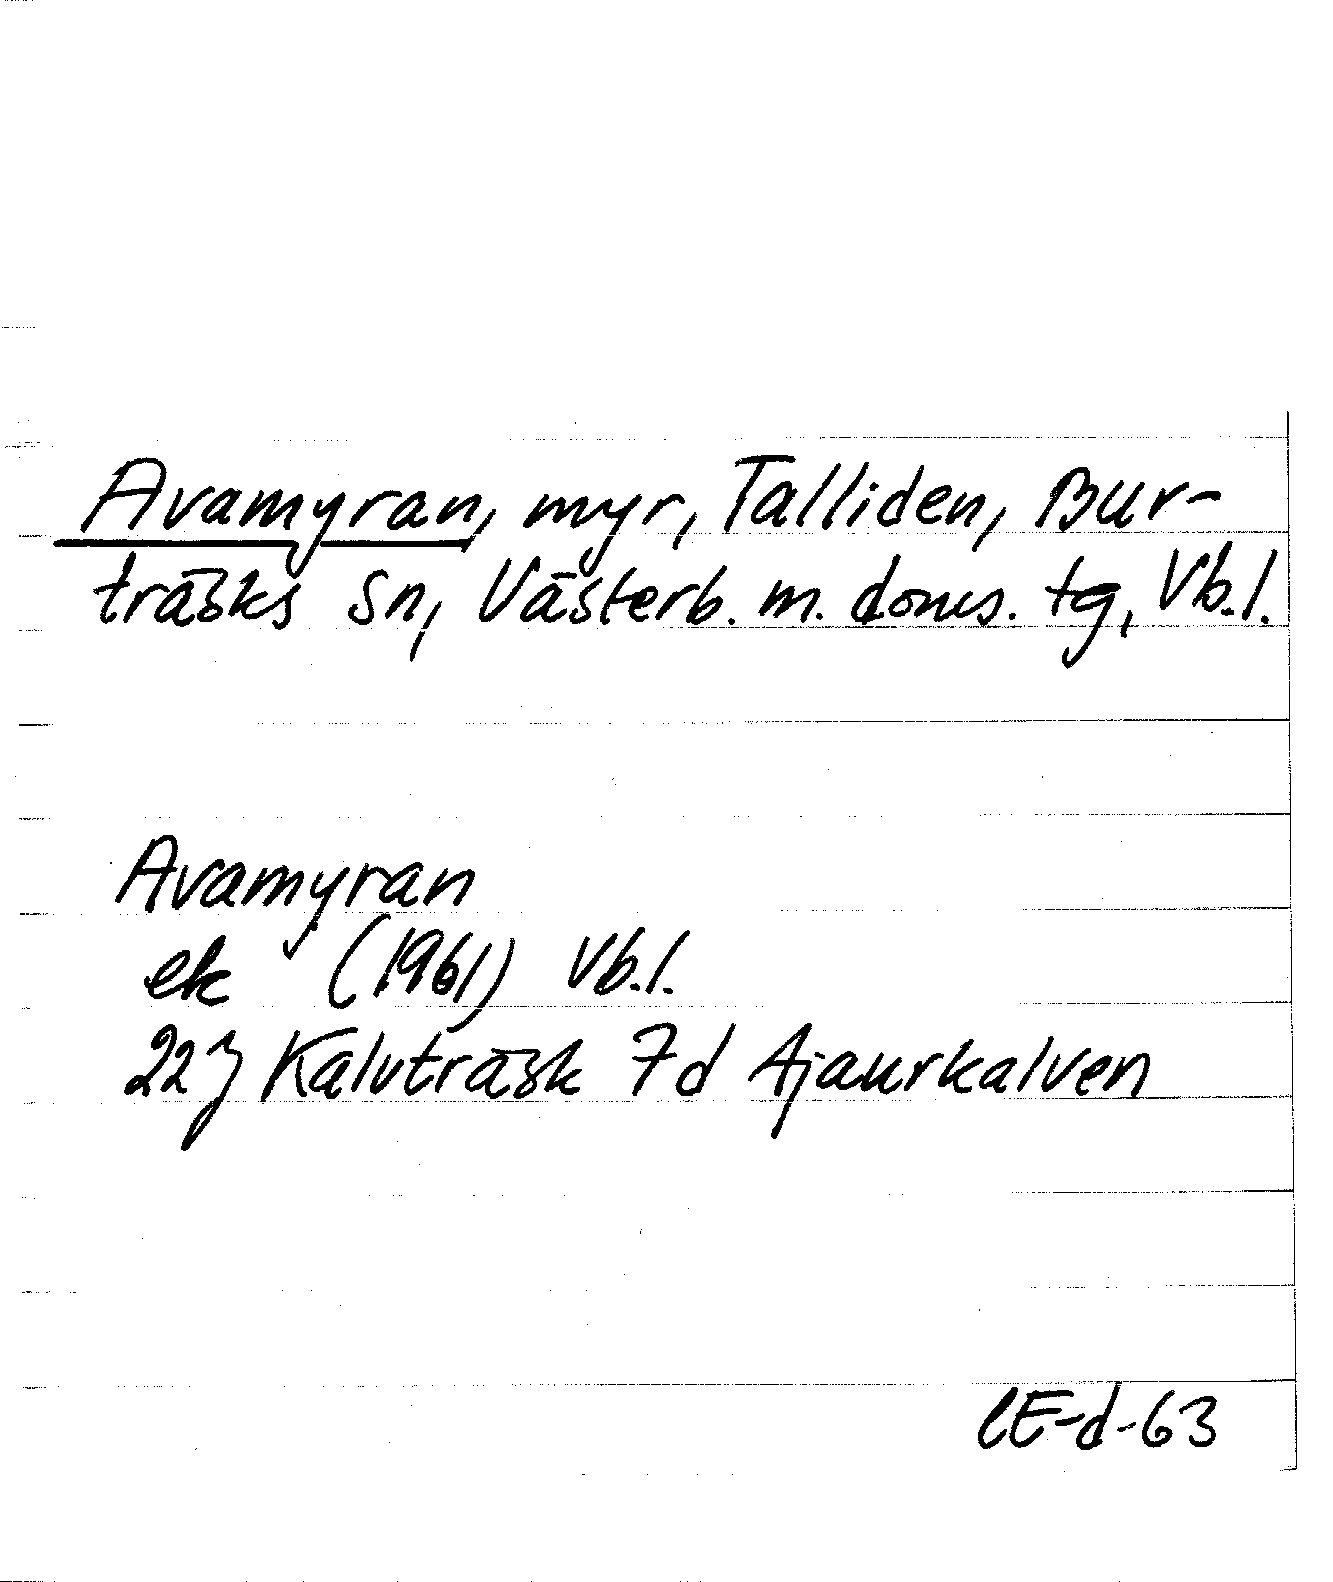 Avamyran, myr, Talliden, Bur-
träsks sn, Västerb. m. doms. tg, Vb.l.
Avamyran
ek (1961) Vb.l.
22J Kalvträsk 7d Ajaurkalven
CE-d-63